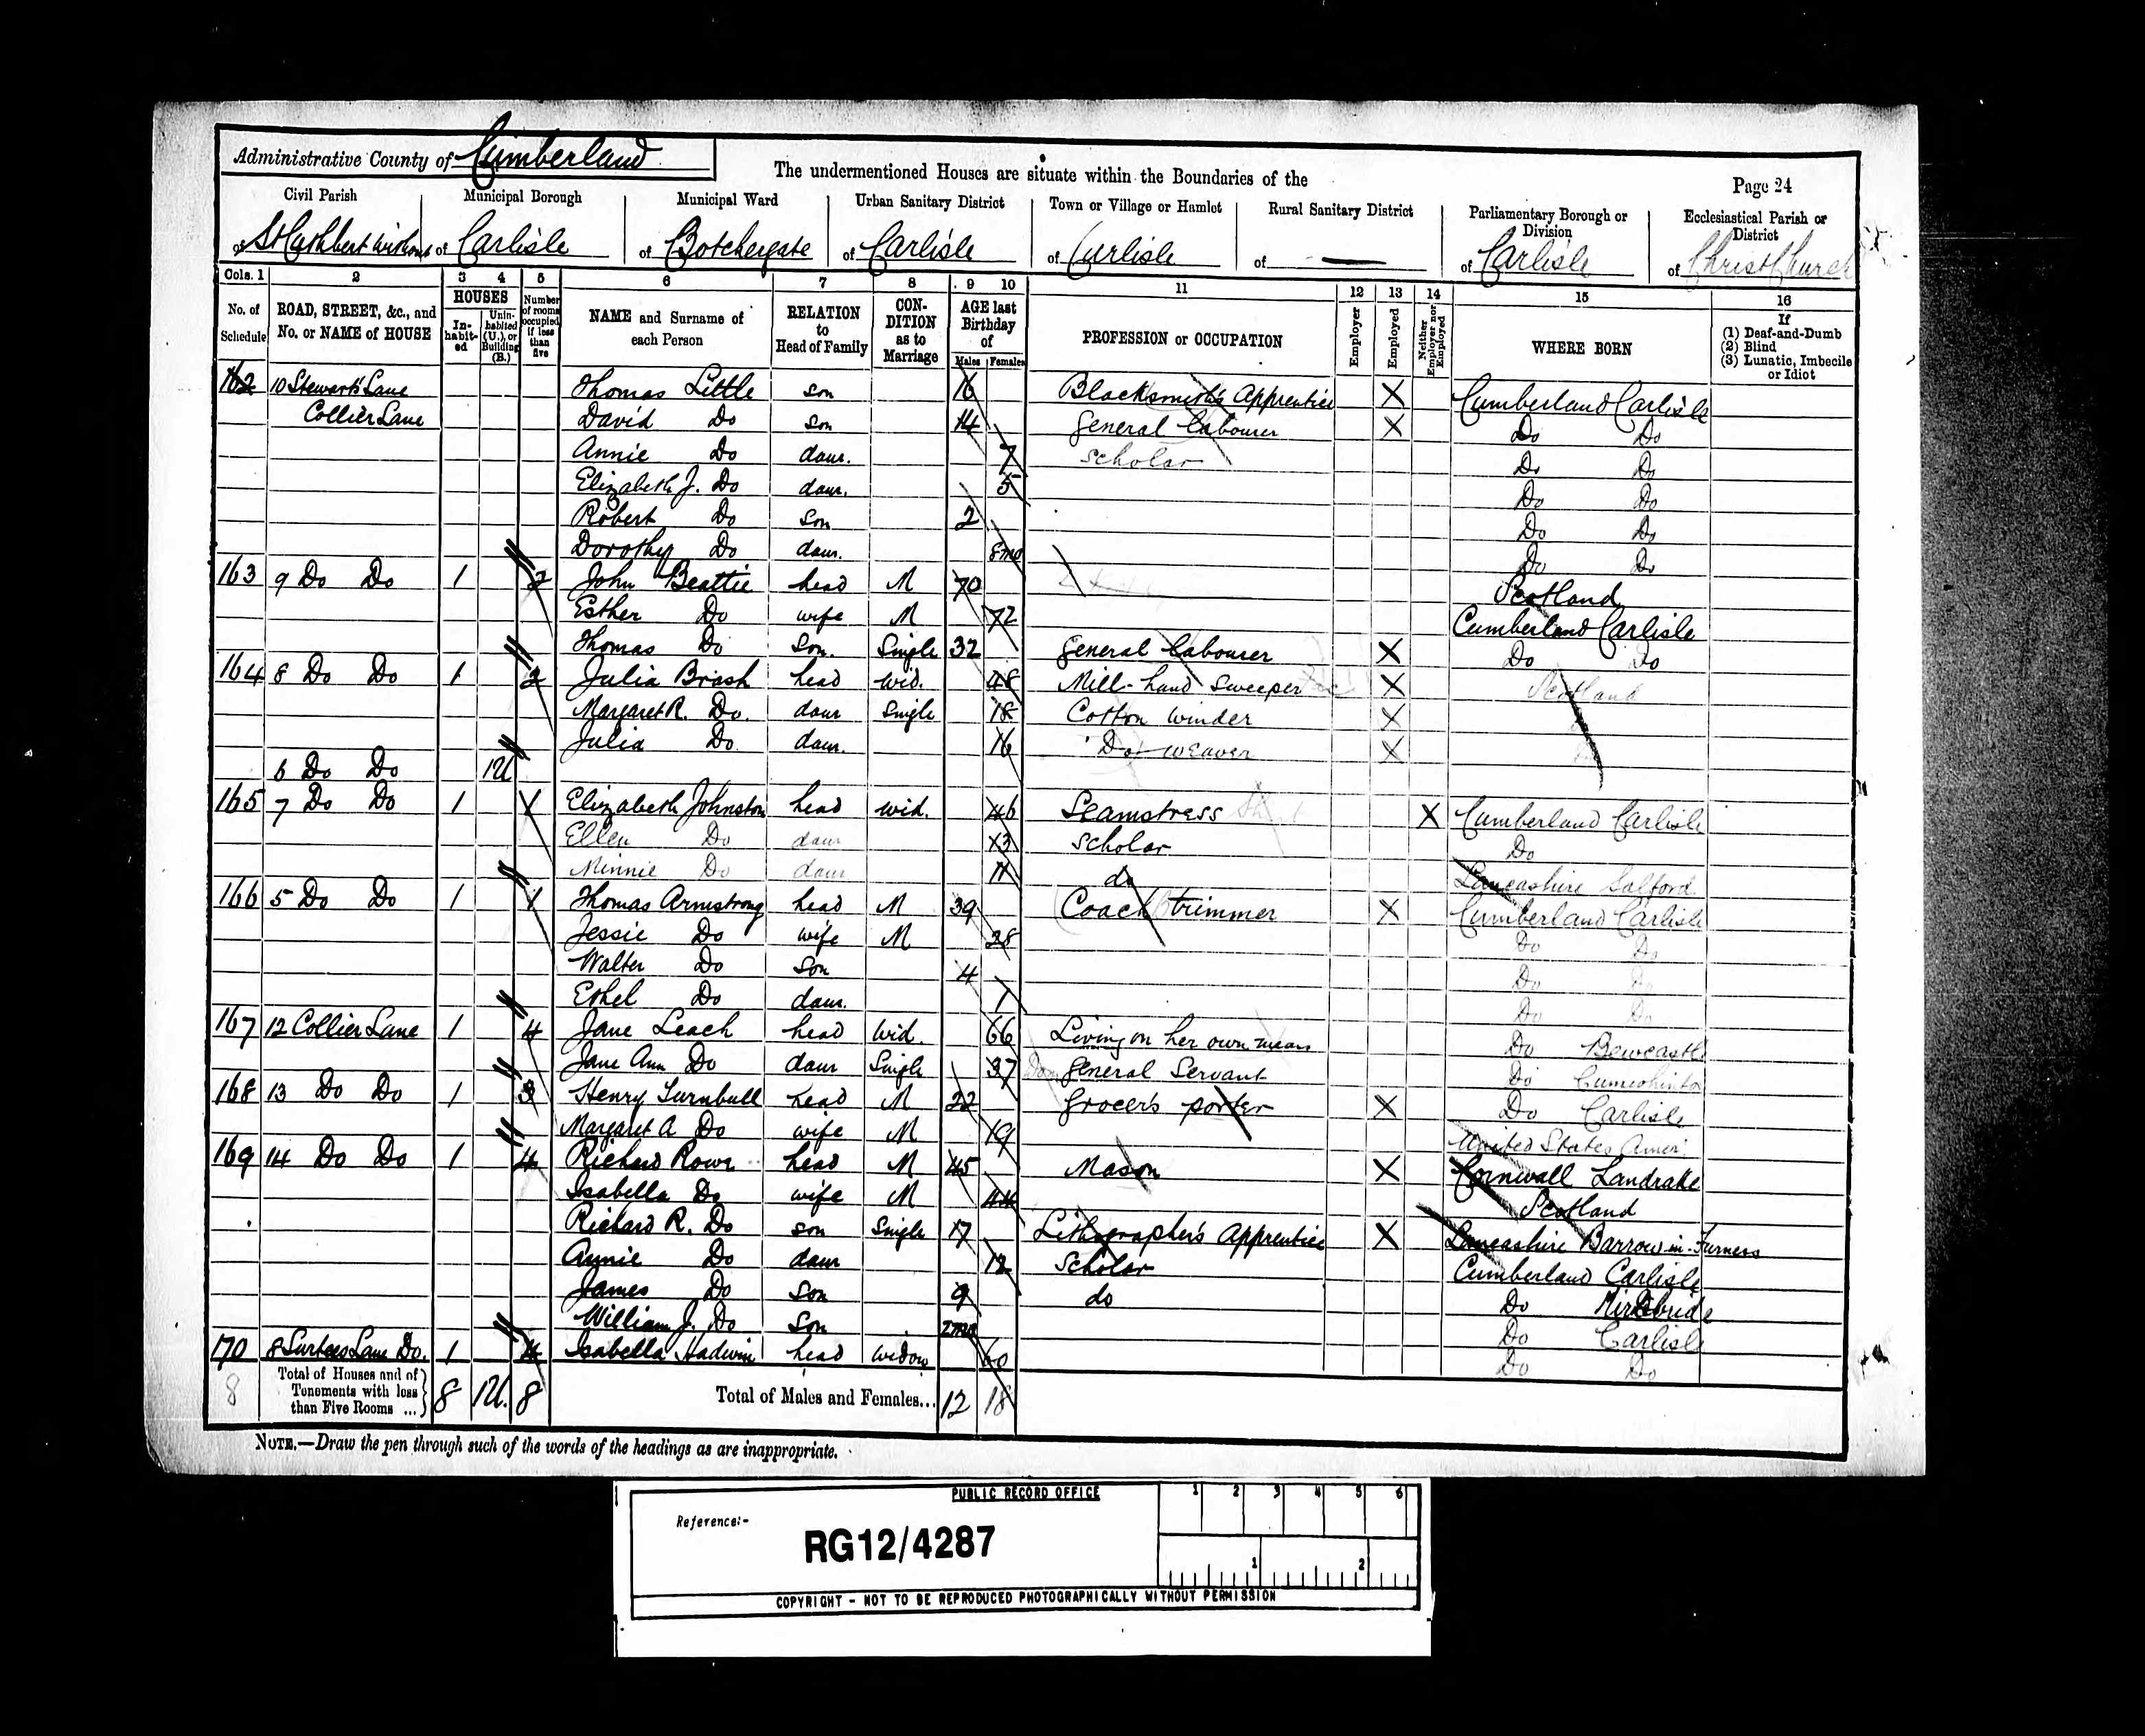 Administrative County of Cumberland
The undermentioned Houses are situate within the Boundaries of the
Page 24
Civil Parish Municipal Borough Municipal Ward Urban Sanitary District Town or Village or Hamlet Rural Sanitary District Parliamentary Borough or Division Ecclesiastical Parish or District
of St Cuthbert Without of Carlisle of Botchergate of Carlisle of Carlisle of — of Carlisle of Christ Church
Cols. 1 2 3 4 5 6 7 8 9 10 11 12 13 14 15 16
No. of Schedule ROAD, STREET, &c., and No. or NAME of HOUSE HOUSES In-habit-ed Unin-habited (U.), or Building (B.) Number of rooms occupied if less than five NAME and Surname of each Person RELATION to Head of Family CON-DITION as to Marriage AGE last Birthday of Males Females PROFESSION or OCCUPATION Employer Employed Neither Employer nor Employed WHERE BORN If (1) Deaf-and-Dumb (2) Blind (3) Lunatic, Imbecile or Idiot
162 10 Stewart's Lane Thomas Little son 16 Blacksmith's Apprentice X Cumberland Carlisle
Collier Lane David Do son 14 General Labourer X Do Do
Annie Do daur. 7 Scholar Do Do
Elizabeth J. Do daur. 5 Do Do
Robert Do son 2 Do Do
Dorothy Do daur. 8mo Do Do
163 9 Do Do 1 2 John Beattie head M 70 Scotland
Esther Do wife M 72 Cumberland Carlisle
Thomas Do Son. Single 32 General Labourer X Do Do
164 8 Do Do 1 2 Julia Brash head wid. 48 Mill-hand Sweeper X Scotland
Margaret R. Do. daur Single 18 Cotton Winder X
Julia Do daur. 16 Do weaver X
6 Do Do 1U
165 7 Do Do 1 1 Elizabeth Johnston head wid. 46 Seamstress X Cumberland Carlisle
Ellen Do daur 13 Scholar Do
Minnie Do daur 11 do Lancashire Salford
166 5 Do Do 1 1 Thomas Armstrong head M 39 Coach trimmer X Cumberland Carlisle
Jessie Do wife M 28 Do Do
Walter Do son 4 Do Do
Ethel Do daur. 1 Do Do
167 12 Collier Lane 1 4 Jane Leach head Wid. 66 Living on her own means Do Bewcastle
Jane Ann Do daur Single 37 Dom General Servant Do Cumwhinton
168 13 Do Do 1 3 Henry Turnbull head M 22 Grocer's porter X Do Carlisle
Margaret A Do wife M 19 United States Amer:
169 14 Do Do 1 4 Richard Rowe head M 45 Mason X Cornwall Landrake
Isabella Do wife M 44 Scotland
Richard R. Do son Single 17 Lithographer's Apprentice X Lancashire Barrow-in-Furness
Annie Do daur 12 Scholar Cumberland Carlisle
James Do son 9 do Do Kirkbride
William J. Do Son 2mo Do Carlisle
170 8 Surtees Lane Do. 1 4 Isabella Hadwin head widow 60 Do Do
8 Total of Houses and of Tenements with less than Five Rooms ... 8 1U. 8 Total of Males and Females... 12 18
NOTE.—Draw the pen through such of the words of the headings as are inappropriate.
PUBLIC RECORD OFFICE
1 2 3 4 5 6
Reference:-
RG12/4287
1 2
COPYRIGHT - NOT TO BE REPRODUCED PHOTOGRAPHICALLY WITHOUT PERMISSION